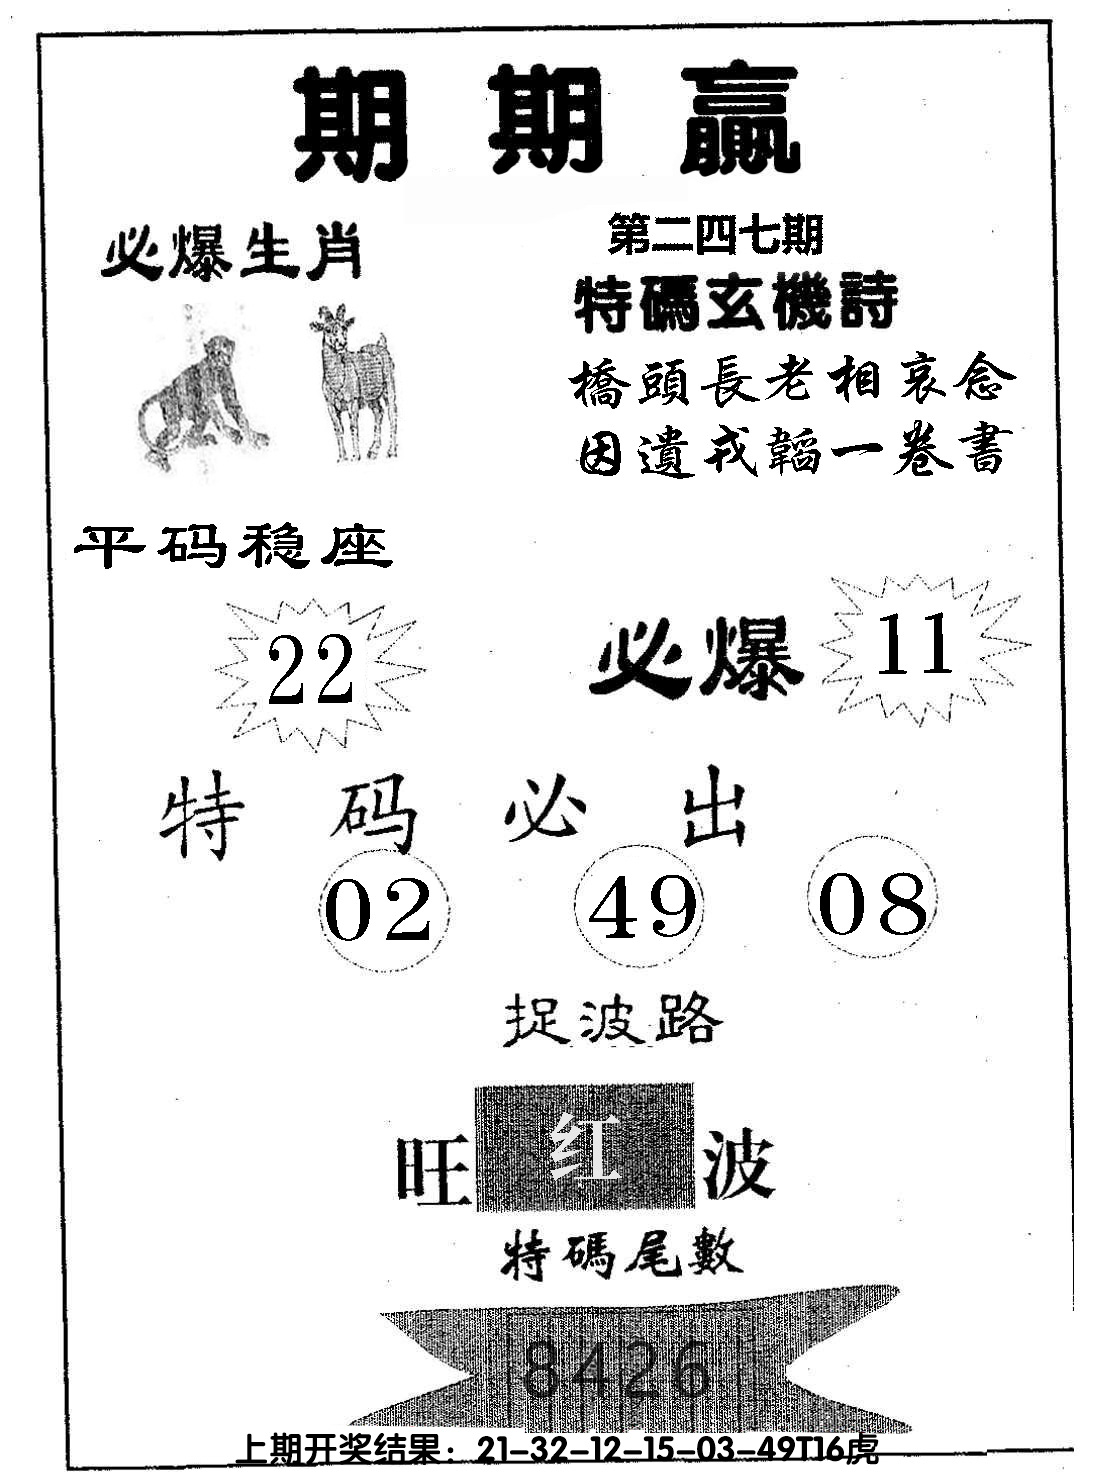 期期赢
必爆生肖
第二四七期
特碼玄機詩
橋頭長老相哀念
因遺戎韜一卷書
平码稳座
22
必爆 11
特码必出
02 49 08
捉波路
旺 红 波
特碼尾數
8426
上期开奖结果：21-32-12-15-03-49T16虎